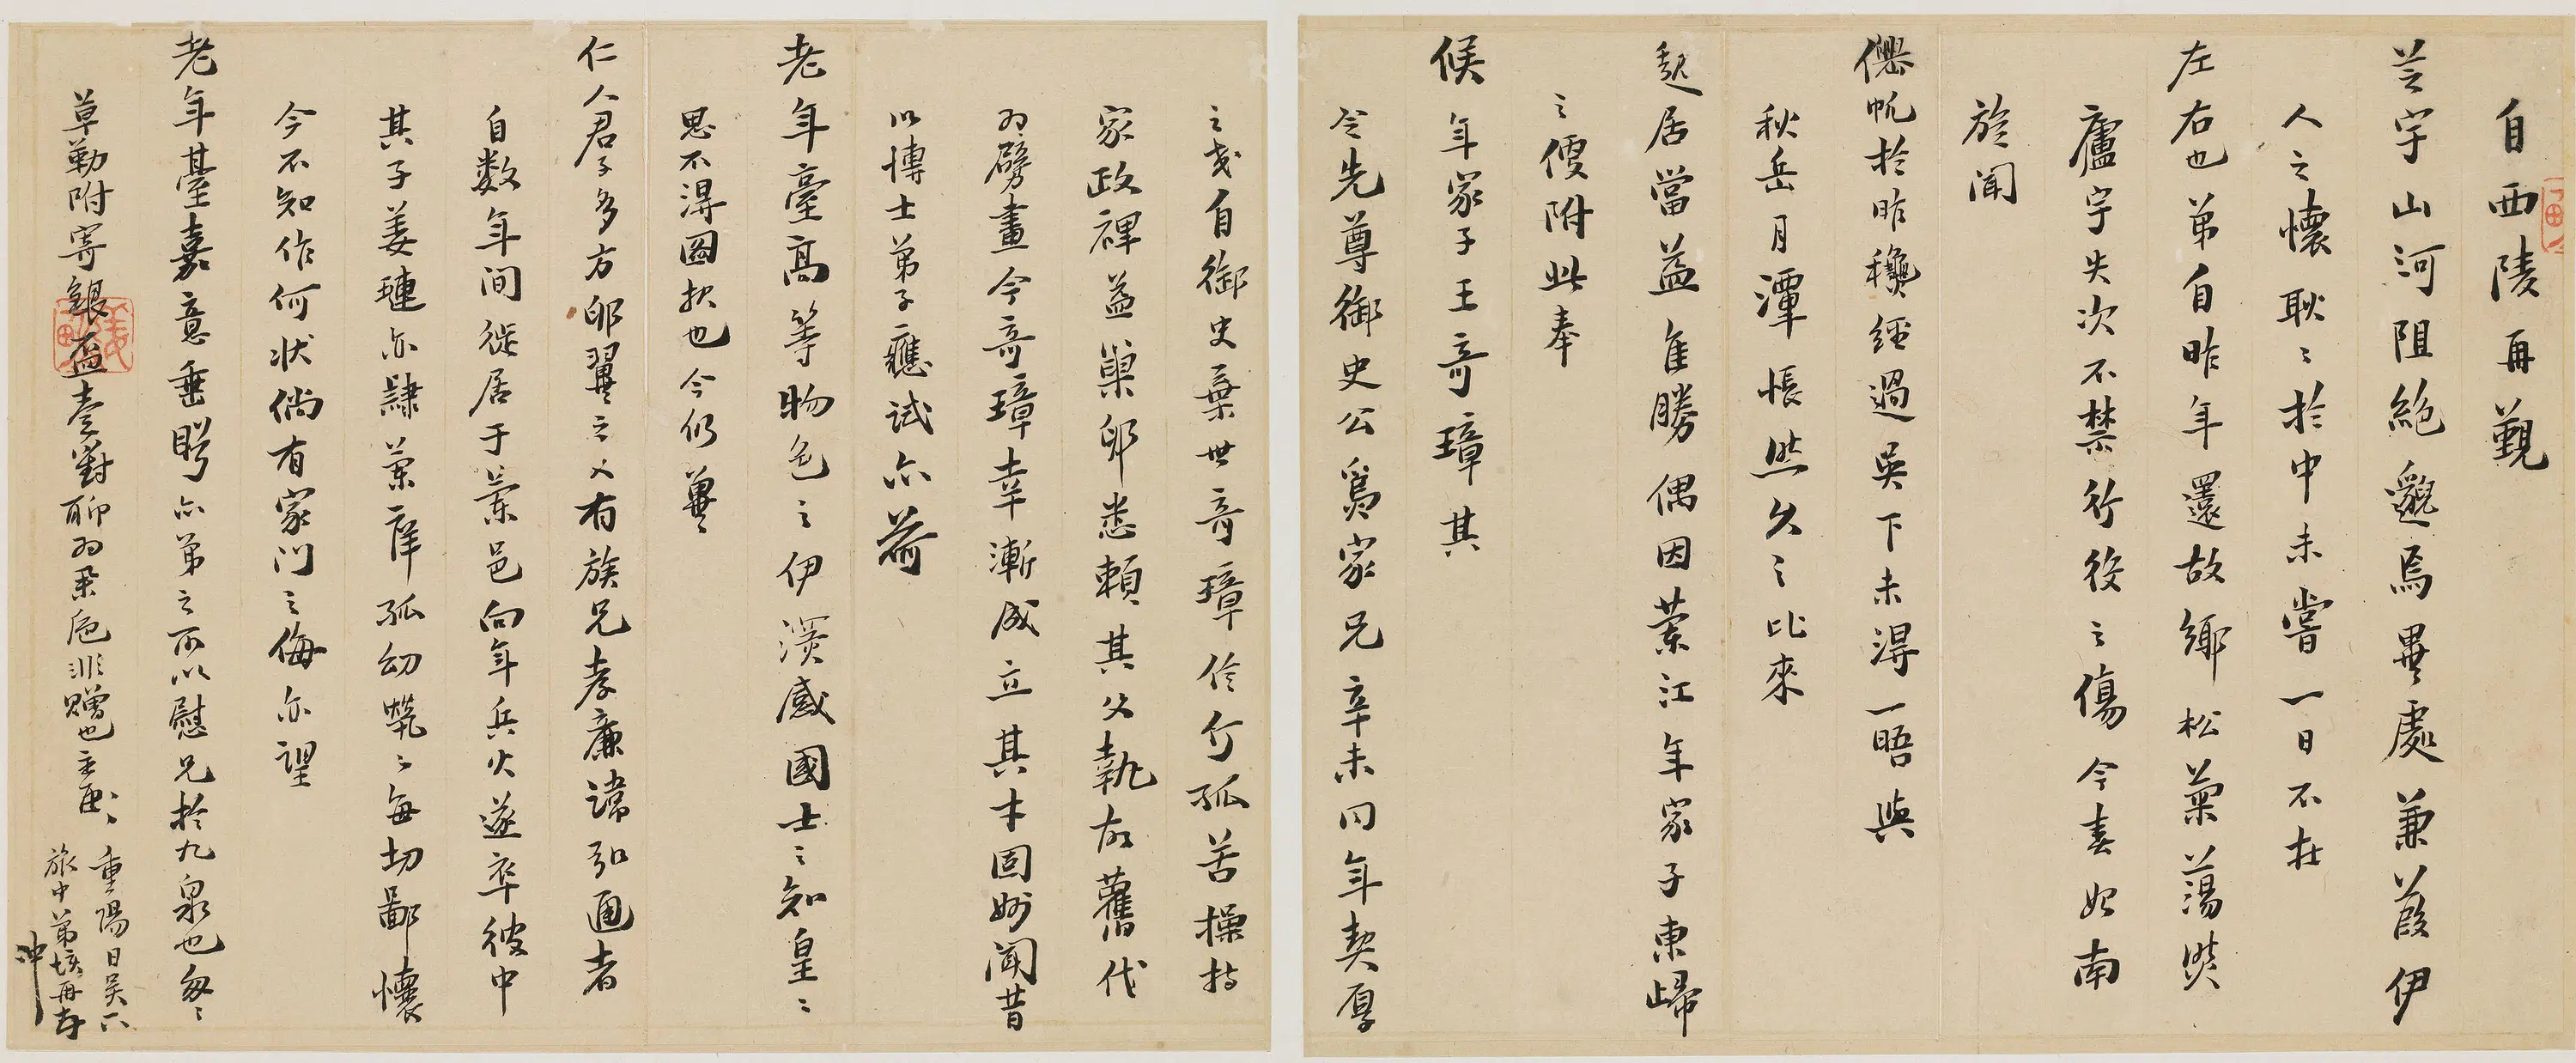 自西陵再觀
芝宇山河阻絕邈焉畢處蒹葭伊
人之懷耿〻於中未嘗一日不在
左右也弟自昨年還故鄉松菊蕩與
廬宇失次不禁行役之傷今春始南
旋聞
僊帆於昨穐經過吳下未得一晤與
秋岳月潭悵然久之比來
起居當益佳勝偶因蘭江年家子東歸
之便附此奉
候年家子王奇璋其
令先尊御史公為家兄辛未同年契厚
之友自御史棄世奇璋伶仃孤苦操持
家政裨益巢卵悉賴其父執故舊代
為劈畫今奇璋幸漸成立其本固妙聞昔
以博士弟子應試亦荷
老年臺高等物色之伊深感國士之知皇〻
思不得圖報也今仍冀
仁人君子多方卵翼之又有族兄孝廉諱弘逥者
自数年间徙居于蘭邑向年兵火遂卒彼中
其子姜璉亦隸蘭庠孤幼煢〻每切鄙懷
今不知作何状倘有家门之侮亦望
老年臺嘉意垂盻亦弟之所以慰兄於九泉也匆〻
草勒附寄銀盃壹對聊为罍卮非贈也主臣〻
重陽日吴门
旅中弟垓再頓
沖